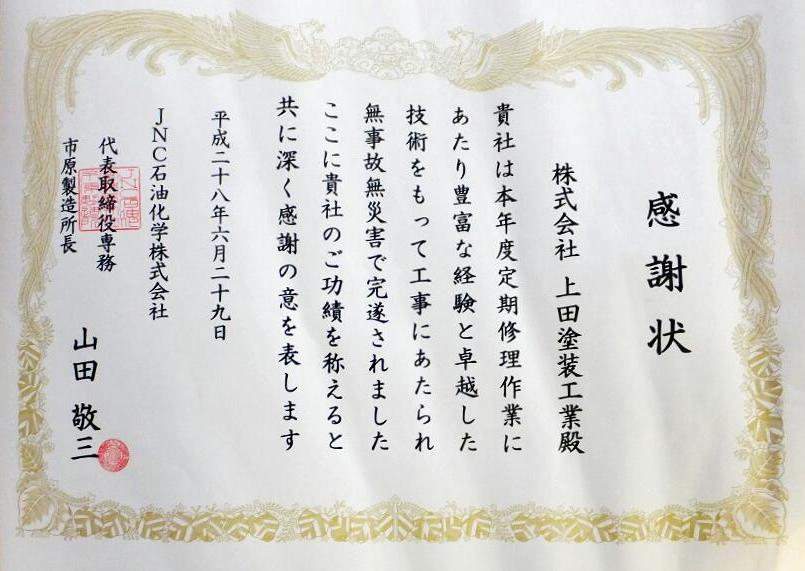 感謝状
株式会社 上田塗装工業殿
貴社は本年度定期修理作業に
あたり豊富な経験と卓越した
技術をもって工事にあたられ
無事故無災害で完遂されました
ここに貴社のご功績を称えると
共に深く感謝の意を表します
平成二十八年六月二十九日
JNC石油化学株式会社
代表取締役専務
市原製造所長
山田 敬三